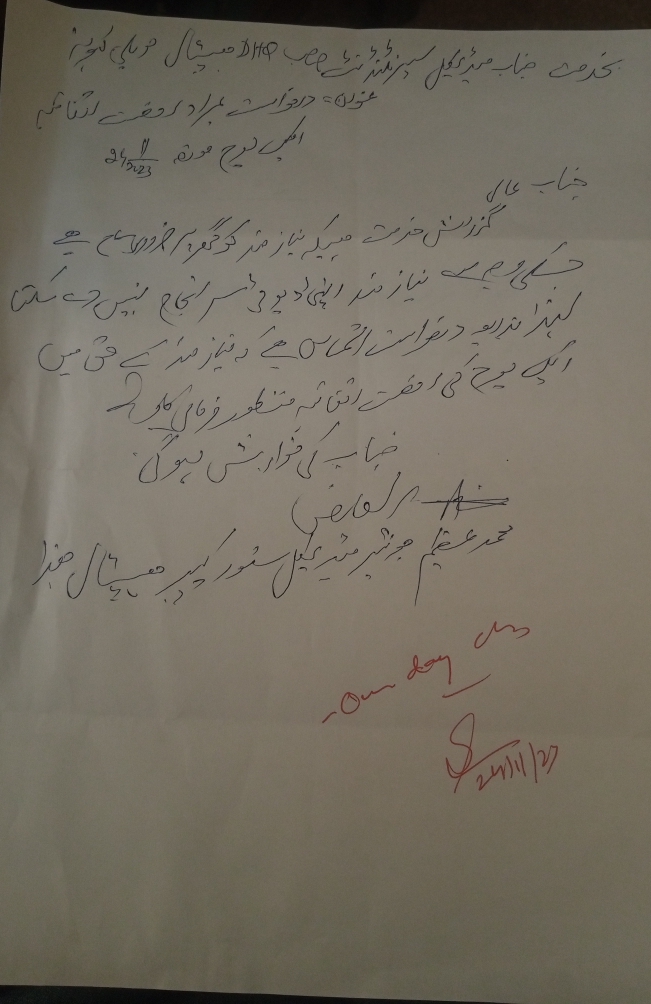 بخدمت جناب میڈیکل سپرنٹنڈنٹ صاحب DHQ ہسپتال حویلی کہوٹہ
عنوان= درخواست بمراد رخصت اتفاقیہ
ایک یوم مورخہ 24/11/2023
جناب عالی
گزارش خدمت ہیکہ نیاز مند کو گھر پر ضروری کام ہے
جسکی وجہ سے نیاز مند اپنی ڈیوٹی سر انجام نہیں دے سکتا
لہذا بذریعہ درخواست التماس ہے کہ نیاز مند کے حق میں
ایک یوم کی رخصت اتفاقیہ منظور فرمائی جاوے
جناب کی نوازش ہوگی
العارض
محمد عظیم جونئیر میڈیکل سٹور کیپر ہسپتال ھذا
One day
24/11/23